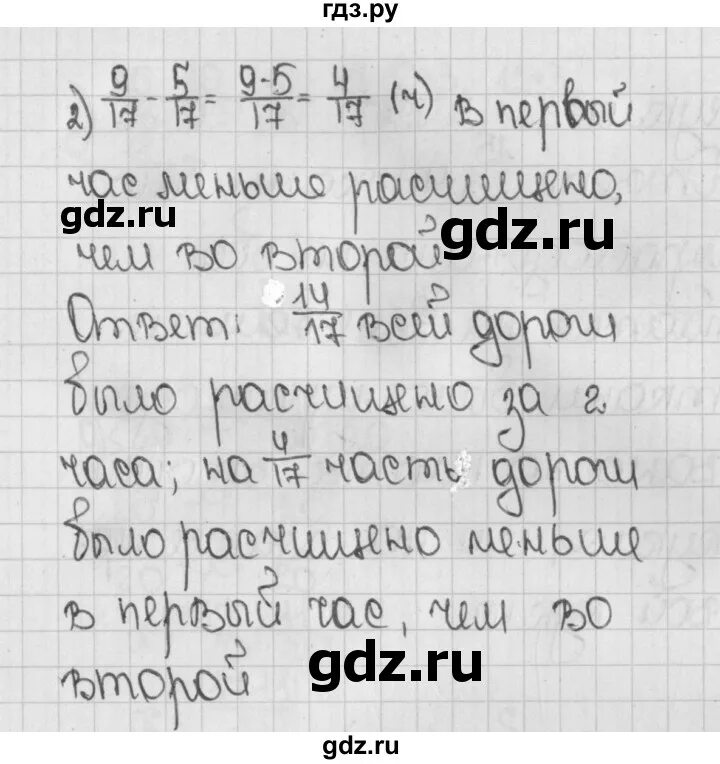 гдз.ру
2) 9/17 - 5/17 = 9-5/17 = 4/17 (ч) в первый
час меньше расчищено,
gdz.ru
gdz.ru
чем во второй
Ответ: 14/17 всей дороги
было расчищено за 2
часа; на 4/17 часть дороги
gdz.ru
было расчищено меньше
в первый час, чем во
gdz.ru
второй
gdz.ru